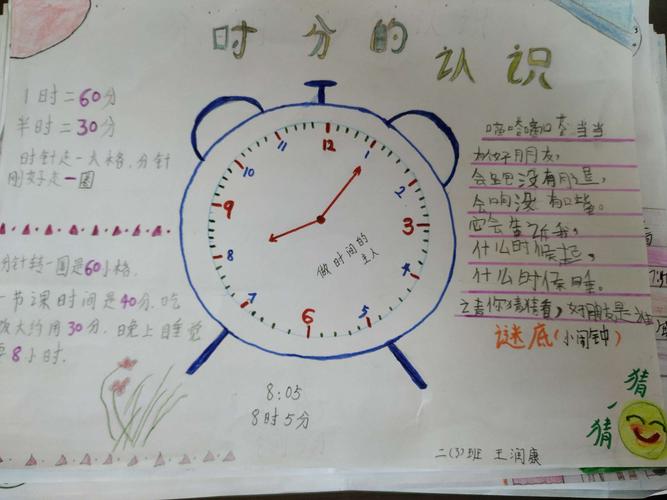 时 分 的 认 识
1时=60分
半时=30分
时针走一大格,分针
刚好走一圈
分针转一圈是60小格.
一节课时间是40分.吃
饭大约用30分.晚上睡觉
要8小时.
12
1
2
3
4
5
6
7
8
9
10
11
做时间的
主人
8:05
8时5分
嘀嗒嘀嗒当当
会跑没有
会响没有嘴。
它会告诉我,
什么时候起,
什么时候睡。
你猜猜看,好朋友是谁
谜底(小闹钟)
猜
一
猜
二(3)班 王润康